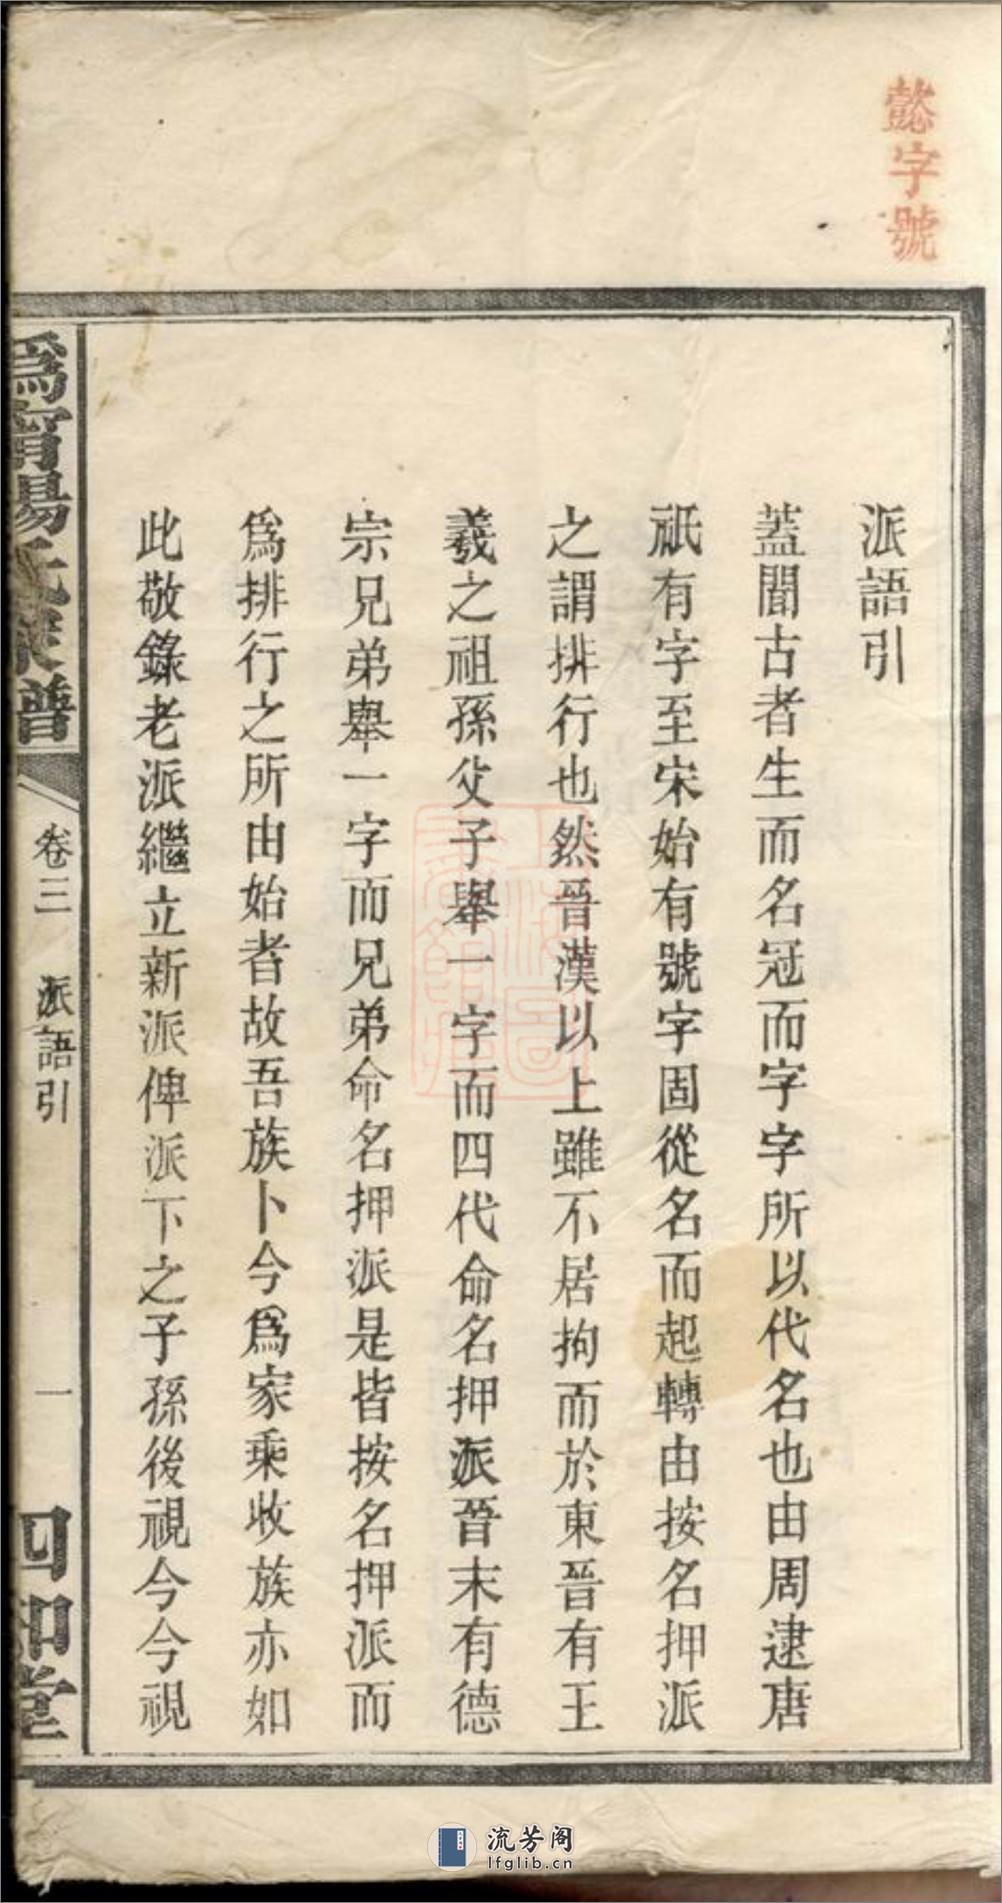 懿字號
派語引
蓋聞古者生而名冠而字字所以代名也由周逮唐
祇有字至宋始有號字固從名而起轉由按名押派
之謂排行也然晉漢以上雖不居拘而於東晉有王
羲之祖孫父子舉一字而四代命名押派晉末有德
宗兄弟舉一字而兄弟命名押派是皆按名押派而
為排行之所由始者故吾族卜今為家乘收族亦如
此敬錄老派繼立新派俾派下之子孫後視今今視
為甯楊氏家譜
卷三
派語引
一
四知堂
流芳阁
lfglib.cn